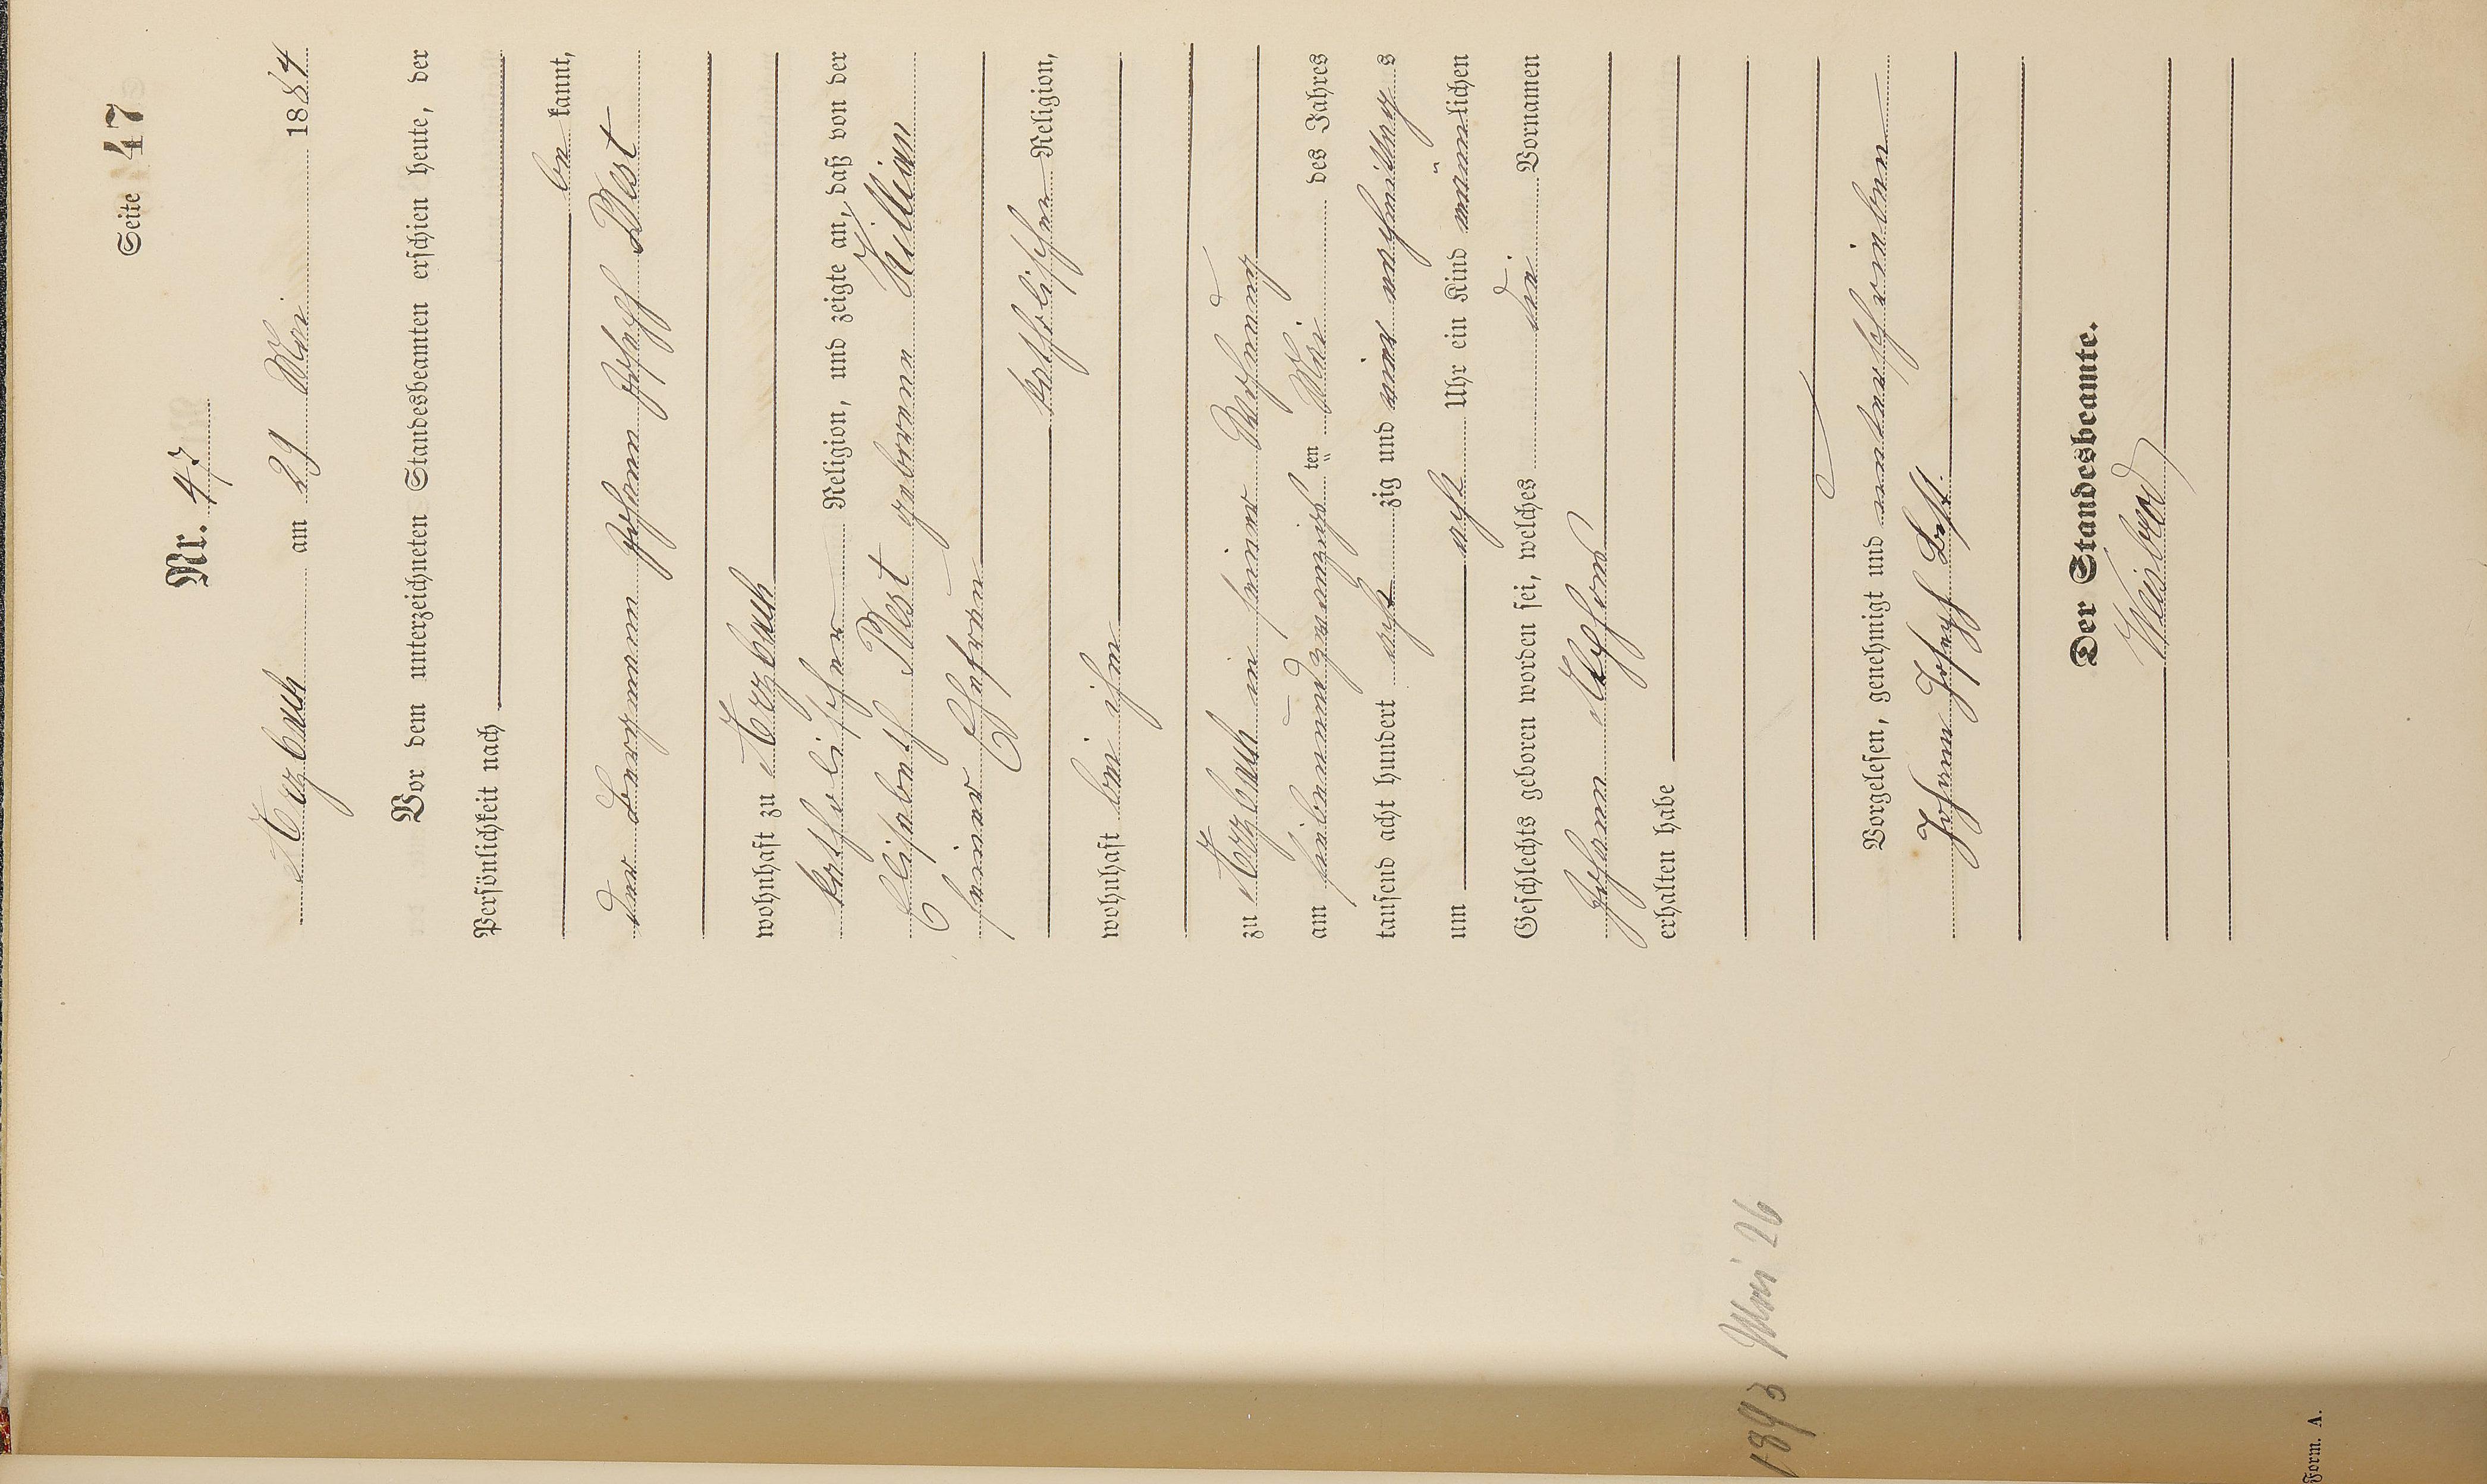 Seite 47
Nr. 47
Urzbach am 29 Mai 1884
Vor dem unterzeichneten Standesbeamten erschien heute, der
Persönlichkeit nach
be kannt,
der Bergmann Johann Joseph Best
wohnhaft zu Urzbach
katholischer Religion, und zeigte an, daß von der
Elisabeth Best geborenen Killian
seiner Ehefrau
katholischer Religion,
wohnhaft bei ihm
zu Urzbach in seiner Wohnung
am siebenundzwanzigsten Mai des Jahres
tausend acht hundert achtzig und vier nachmittags
um acht Uhr ein Kind männlichen
Geschlechts geboren worden sei, welches die Vornamen
Johann Alfons
erhalten habe
Vorgelesen, genehmigt und unterschrieben
Johann Joseph Best.
Der Standesbeamte.
1893 Mai 26
Form. A.